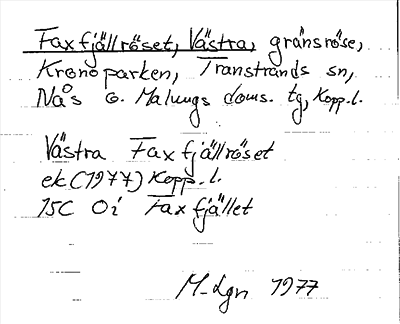 Faxfjällröset, Västra, gränsröse,
Kronoparken, Transtrands sn,
Nås o. Malungs doms. tg, Kopp.l.
Västra Faxfjällröset
ek.(1977) Kopp.l.
15C 0i Faxfjället
M-Lgn 1977